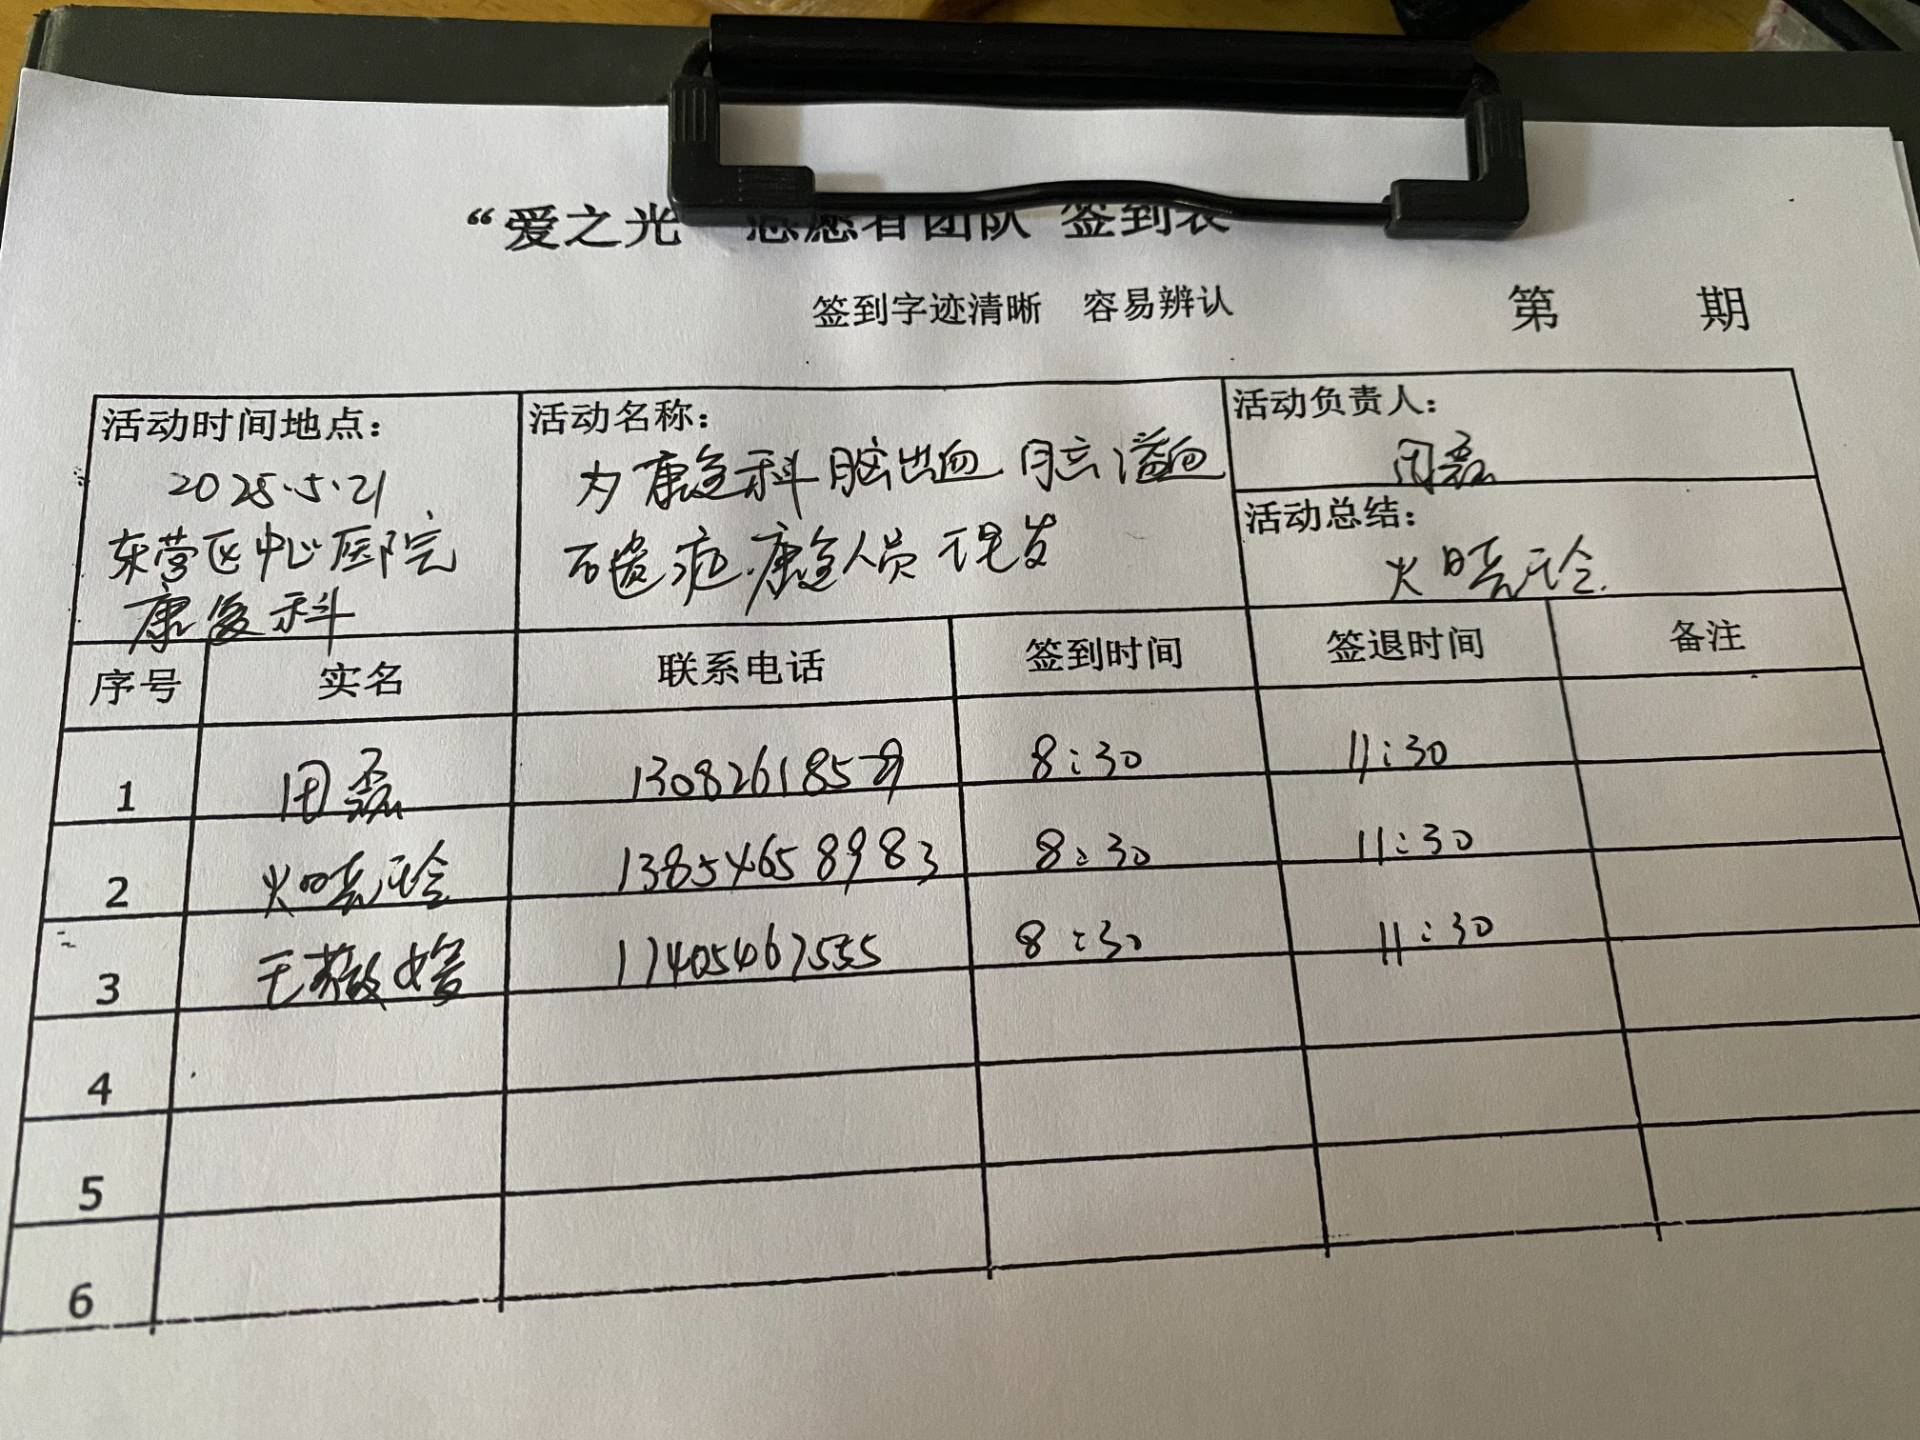 “爱之光” 志愿者团队 签到表
签到字迹清晰 容易辨认 第 期
活动时间地点：
2025.5.21
东营区中心医院
康复科
活动名称：
为康复科脑出血 脑溢血
后遗症.康复人员理发
活动负责人：
田磊
活动总结：
火晓玲.
序号 实名 联系电话 签到时间 签退时间 备注
1 田磊 8:30 11:30
2 火晓玲 13854658983 8:30 11:30
3 王敬 17405467555 8:30 11:30
4
5
6